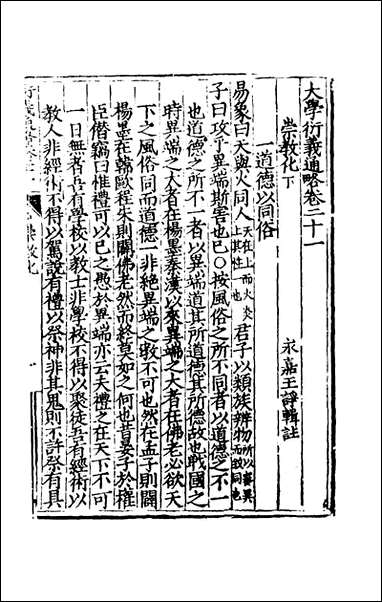 大學衍義通略卷二十一
崇敎化下
永嘉王諍輯註
一道德以同俗
易象曰天與火同人天在上而火炎上其性也君子以類族辨物所以審異而致同也
子曰攻乎異端斯害也已○按風俗之所不同者以道德之不一
也道德之所不一者以異端道其所道德其所德故也戰國之
時異端之大者在楊墨秦漢以來異端之大者在佛老必欲天
下之風俗同而道德一非絕異端之敎不可也然在孟子則闢
楊墨在韓歐程朱則闢佛老然而終莫如之何也昔晏子於權
臣僭竊曰惟禮可以已之愚於異端亦云夫禮之在天下不可
一日無者吾有學校以敎士非學校不得以聚徒吾有經術以
敎人非經術不得以駕說有禮以祭神非其鬼則不許祭有具
崇敎化